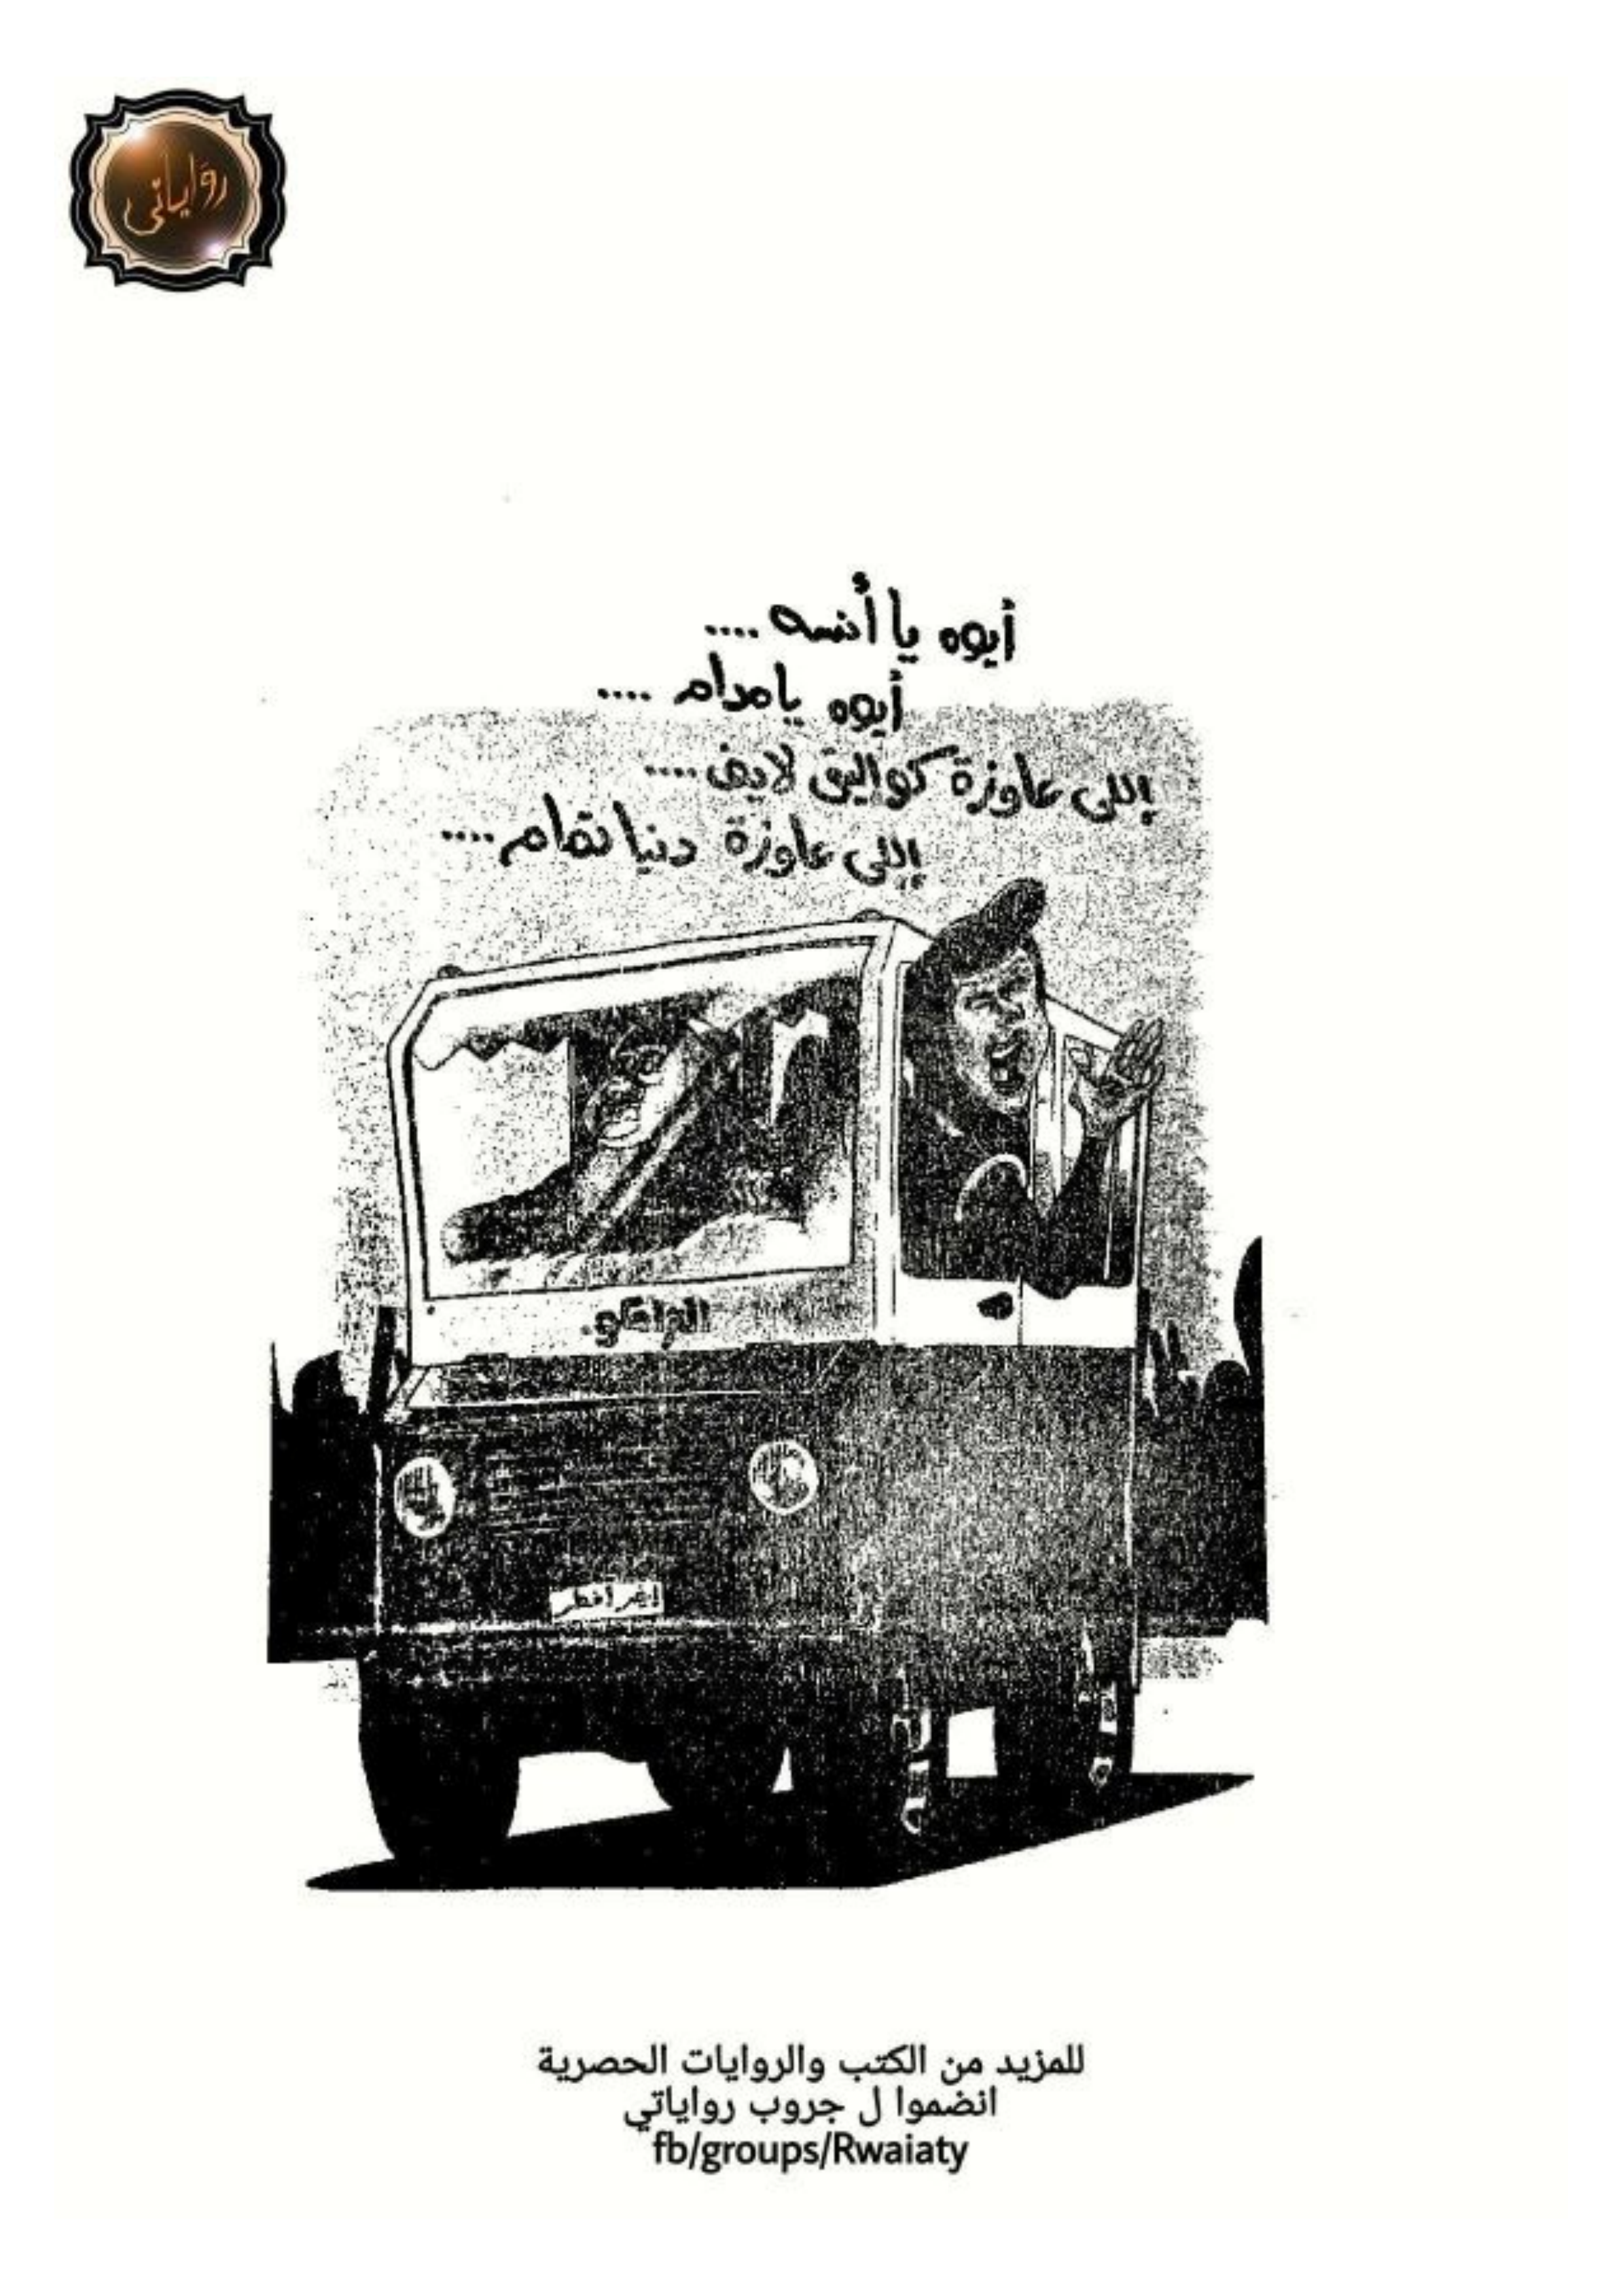 رواياتي
أيوه يا أنسه ....
أيوه يا مدام ....
إللى عاوزة كواليتى لايف ....
إللى عاوزة دنيا تمام ....
للمزيد من الكتب والروايات الحصرية
انضموا ل جروب رواياتي
fb/groups/Rwaiaty